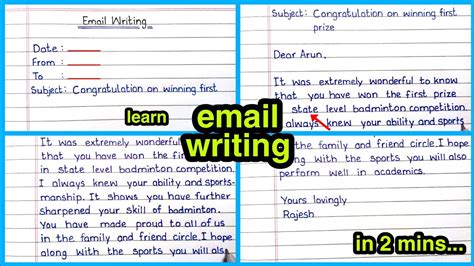 Email Writing
Date :
From :
To :
Subject: Congratulation on winning first
Subject: Congratulation on winning first
prize
Dear Arun,
It was extremely wonderful to know
that you have won the first prize
in state level badminton competition.
I always knew your ability and sports
learn
email
writing
It was extremely wonderful
that you have won the first
in state level badminton competition.
I always knew your ability and sports-
manship. It shows you have further
sharpened your skill of badminton.
You have made proud to all of us
in the family and friend circle. I hope
along with the sports you will als
of the family and friend circle. I hope
along with the sports you will also
perform well in academics.
Yours lovingly
Rajesh
in 2 mins...